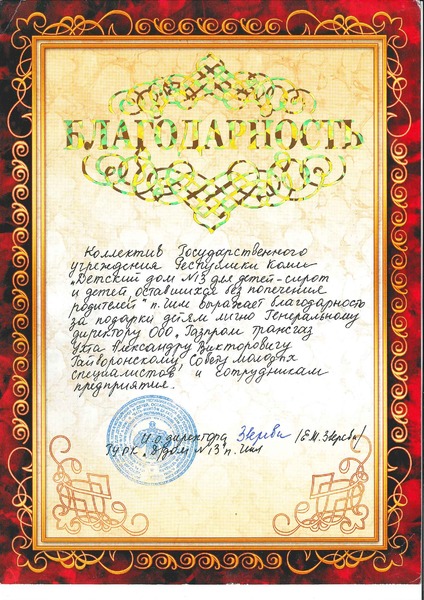 БЛАГОДАРНОСТЬ
Коллектив Государственного
учреждения Республики Коми
„Детский дом №13 для детей-сирот
и детей, оставшихся без попечение
родителей" п. Чим выражает благодарность
за подарки детям лично Генеральному
директору ООО „Газпром трансгаз
Ухта Александру Викторовичу
Гайворонскому, Совету молодых
специалистов и сотрудникам
предприятие.
И.о. директора
ГУ РК „Д/дом №13" п. Чим